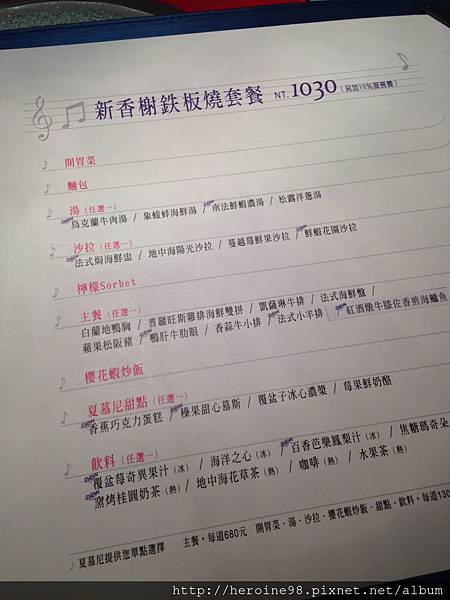 新香榭鉄板燒套餐 NT. 1030 (另加10%服務費)
開胃菜
麵包
湯 (任選一)
烏克蘭牛肉湯 / 象蚊蚌海鮮湯 / new 南法鮮蝦濃湯 / 松露洋蔥湯
沙拉 (任選一)
new 法式焗海鮮盅 / 地中海陽光沙拉 / 蔓越莓鮮果沙拉 / new 鮮蝦花園沙拉
檸檬Sorbet
主餐 (任選一)
白蘭地鴨胸 / 普羅旺斯雞排海鮮雙拼 / 凱薩琳牛排 / 法式海鮮盤 /
蘋果松阪豬 / new 鴨肝牛肋眼 / 香蒜牛小排 / new 法式小羊排 / new 紅酒燉牛膝佐香煎海鱸魚
櫻花蝦炒飯
夏慕尼甜點 (任選一)
new 香蕉巧克力蛋糕 / new 榛果甜心慕斯 / 覆盆子冰心濃漿 / 莓果鮮奶酪
飲料 (任選一)
new 覆盆莓奇異果汁 (冰) / 海洋之心 (冰) / new 百香芭樂鳳梨汁 (冰) / 焦糖瑪奇朵
new 窯烤桂圓奶茶 (熱) / 地中海花草茶 (熱) / 咖啡 (熱) / 水果茶 (熱)
夏慕尼提供您單點選擇 主餐，每道680元 開胃菜、湯、沙拉、櫻花蝦炒飯、甜點、飲料，每道130
http://heroine98.pixnet.net/album